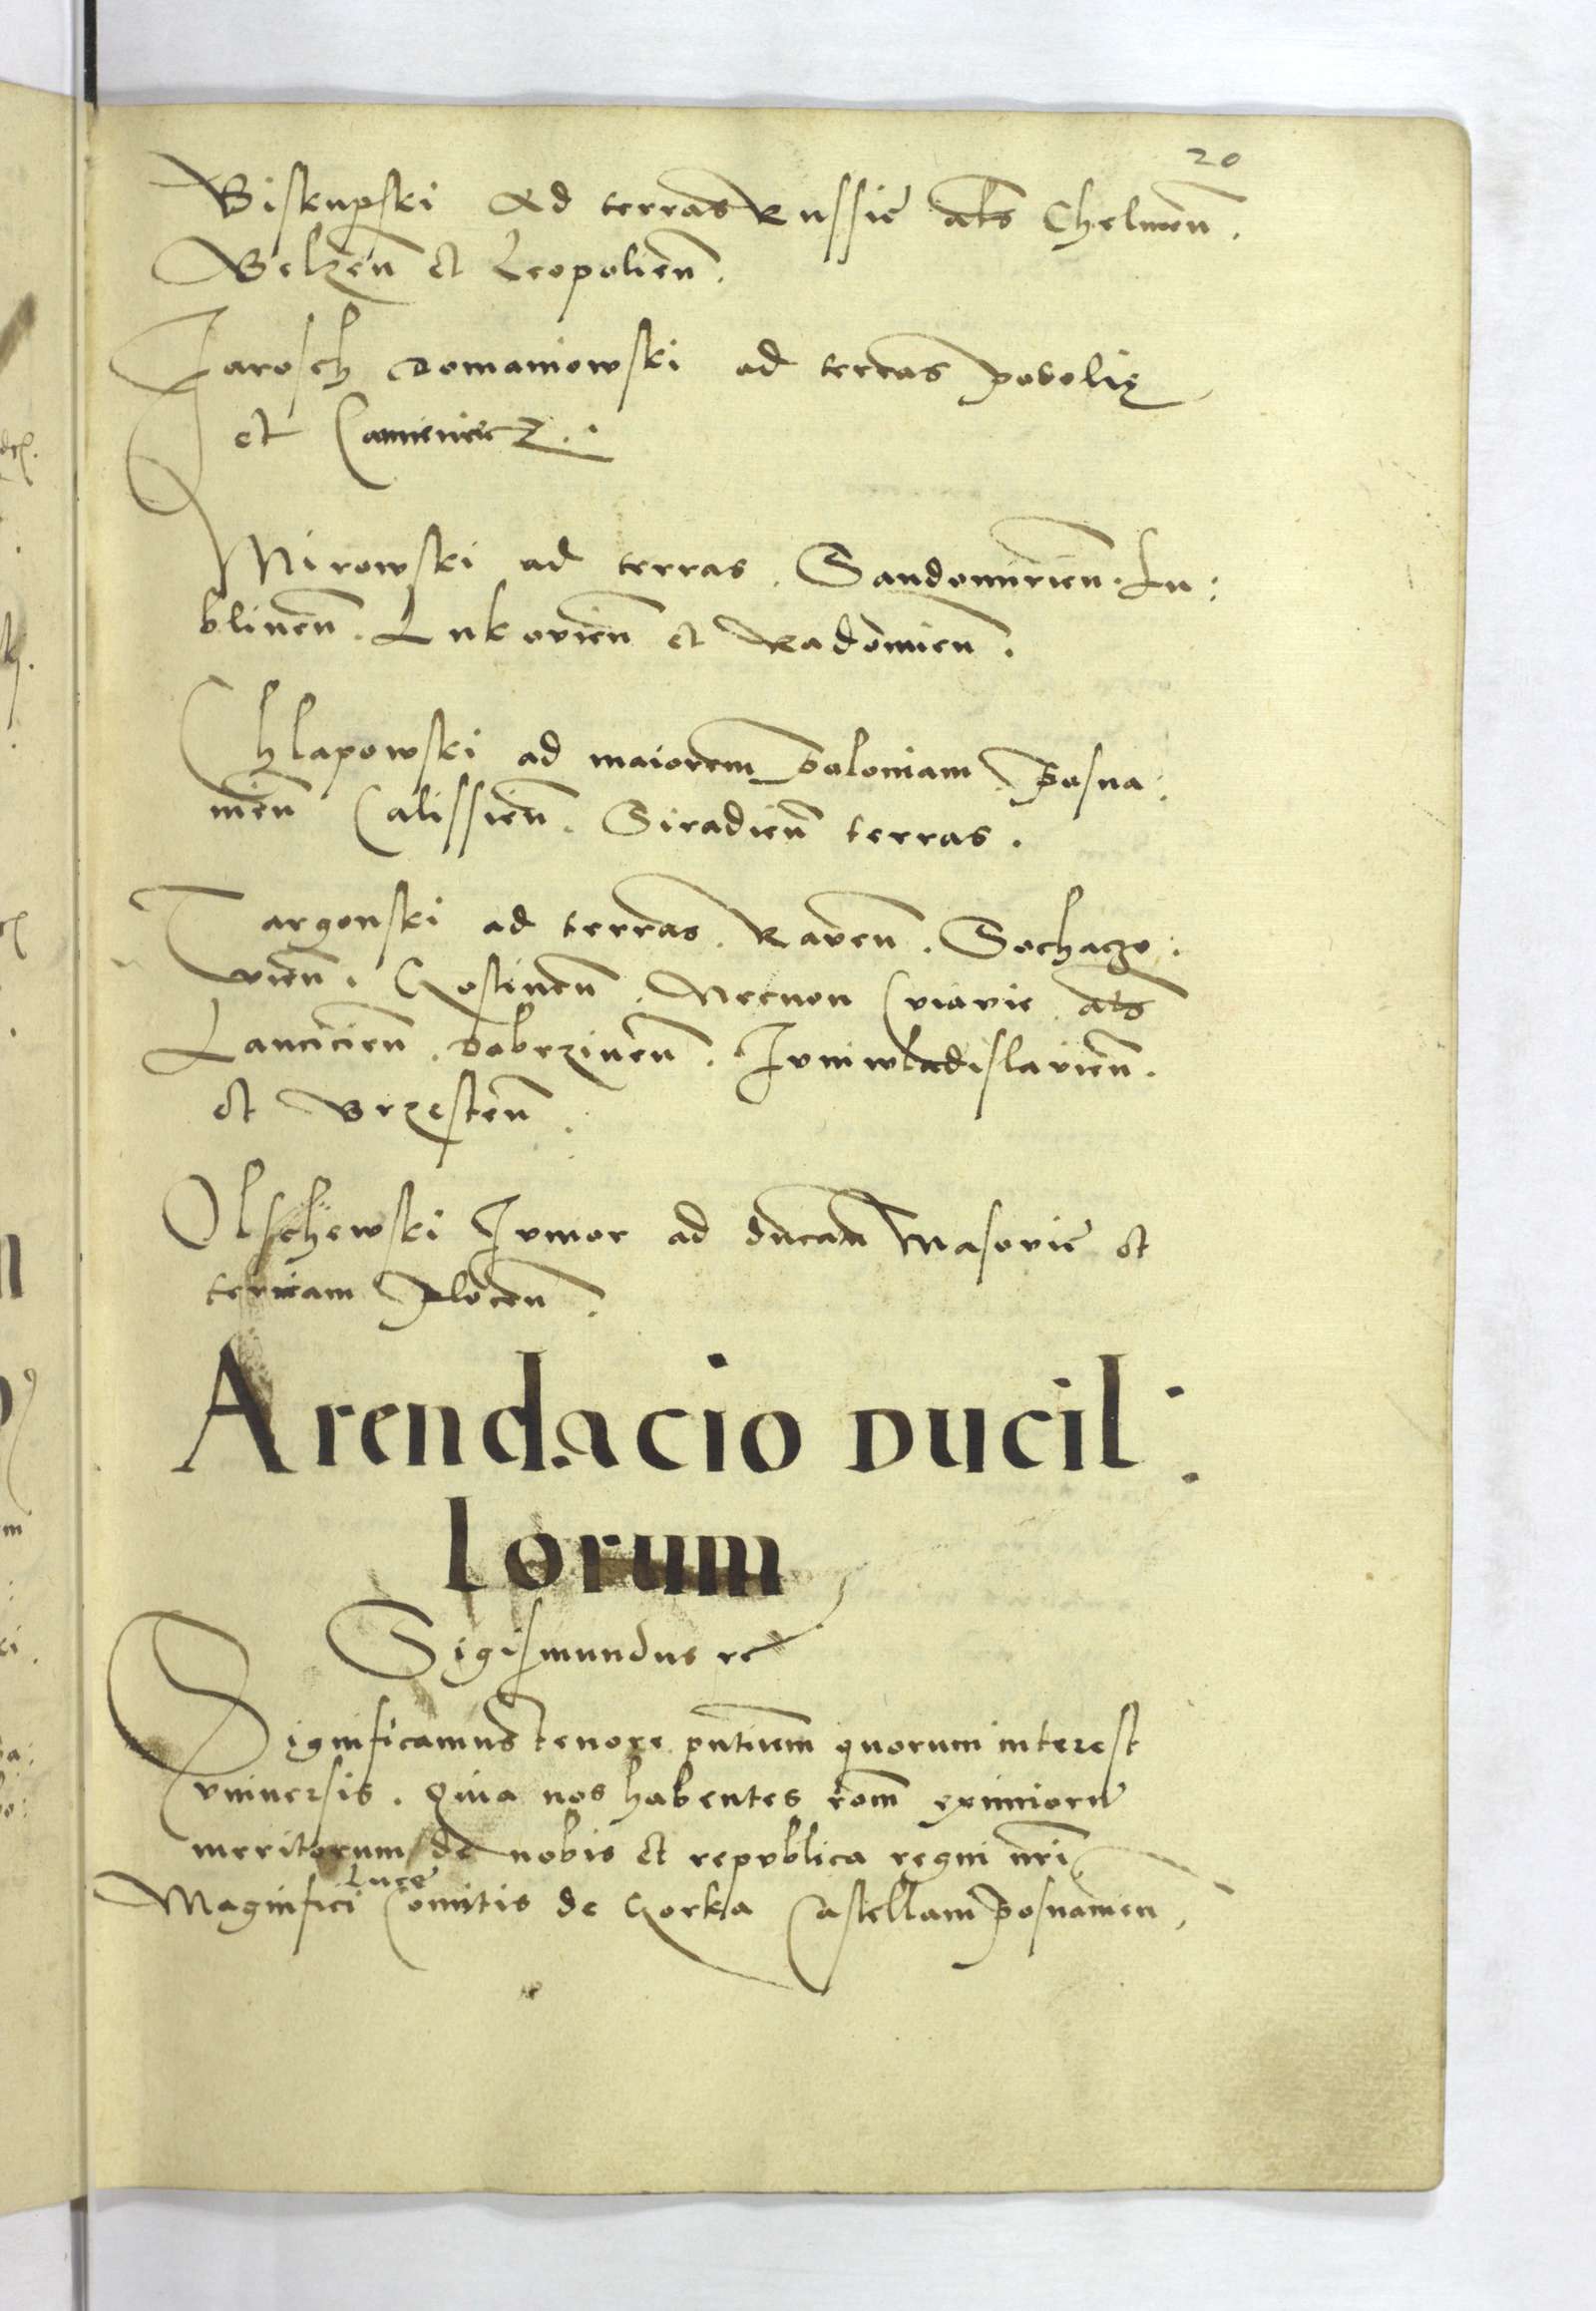 20
Biskupski Ad terras Russie al̃s Chelmeñ.
Belzeñ et Leopolieñ.
Jarosch Domaniowski ad terras podolię
et Camenicz.
Mirowski ad terras. Sandomirieñ. Lu:
blineñ. Lukovieñ et Radomieñ.
Chlapowski ad maiorem poloniam. Posna:
nieñ Calissieñ. Siradieñ terras.
Targonski ad terras. Raveñ. Sochacze:
vieñ. Gostineñ. Necnon Cviavie al̃s
Lancicieñ. Dobrzineñ. Jvniwladislavieñ.
et Brzesteñ.
Olschewski Jvnior ad ducañ Masovie et
terram Ploceñ.
Arendacio Ducil:
lorum
Sigismundus rc
Significamus tenore pñtium quorum interest
vniversis. Quia nos habentes rõm eximiorũ
meritorum de nobis et repvblica regni nrĩ
Luce
Magnifici Comitis de Gorka Castellani posnanień,